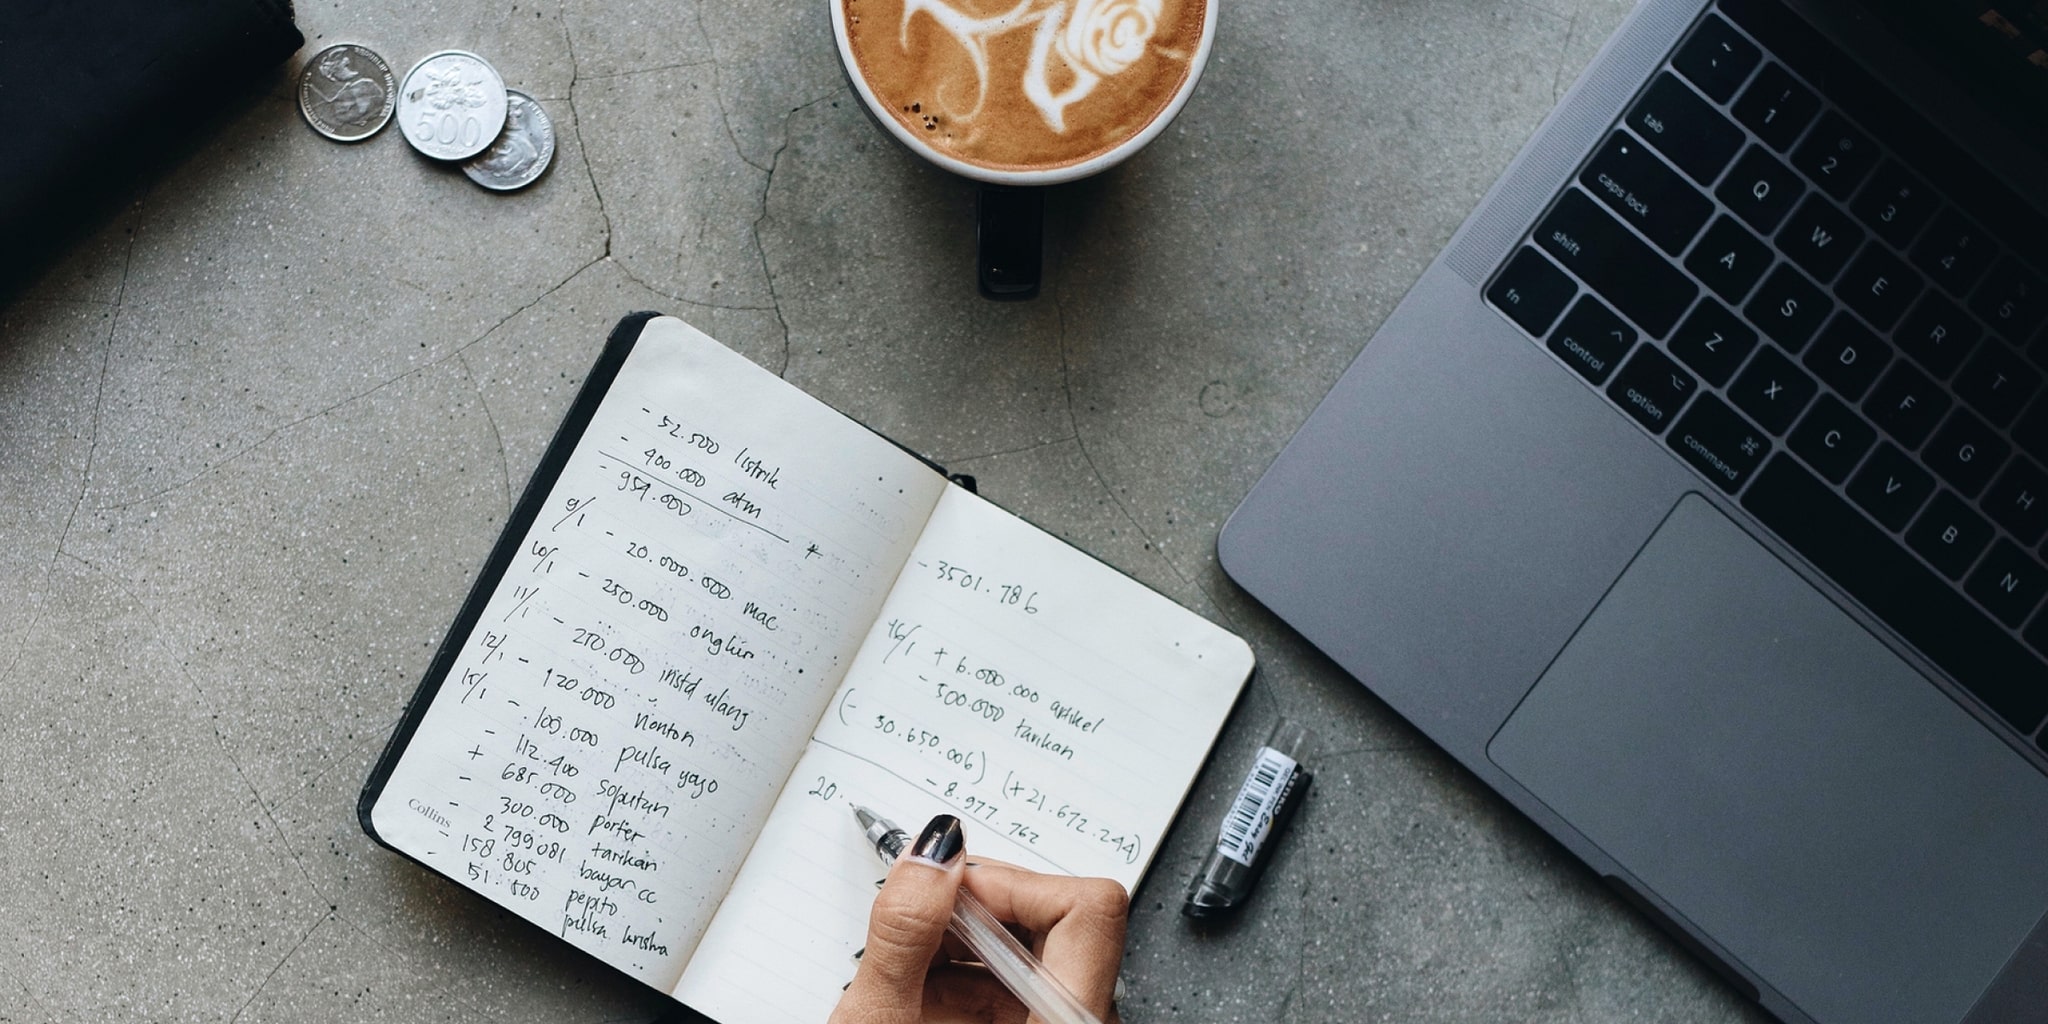 500
- 52.500 listrik
- 400.000 atm
- 954.000
+
9/1 - 20.000.000 mac
10/1 - 250.000 ongkir
11/1 - 270.000 instal ulang
12/1 - 120.000 nonton
15/1 - 109.000 pulsa yoyo
- 112.400 soputan
+ 685.000 porter
- 300.000 tarikan
- 2 799 081 bayar cc
- 158.805 pepito
- 51.500 pulsa krisna
Collins
- 3501.786
16/1 + 6.000.000 artikel
- 500.000 tarikan
(- 30.650.006) (+ 21.672.244)
- 8.977.762
20.
~
!
1
@
2
#
3
$
4
5
tab
Q
W
E
R
T
caps lock
A
S
D
F
G
H
shift
Z
X
C
V
B
N
fn
control
option
command